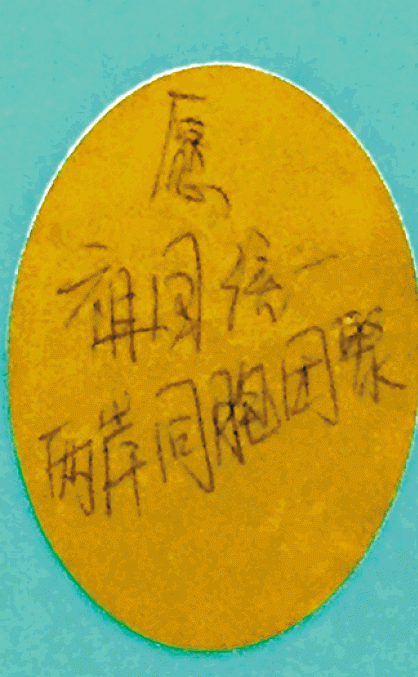 愿
祖国统一
两岸同胞团聚